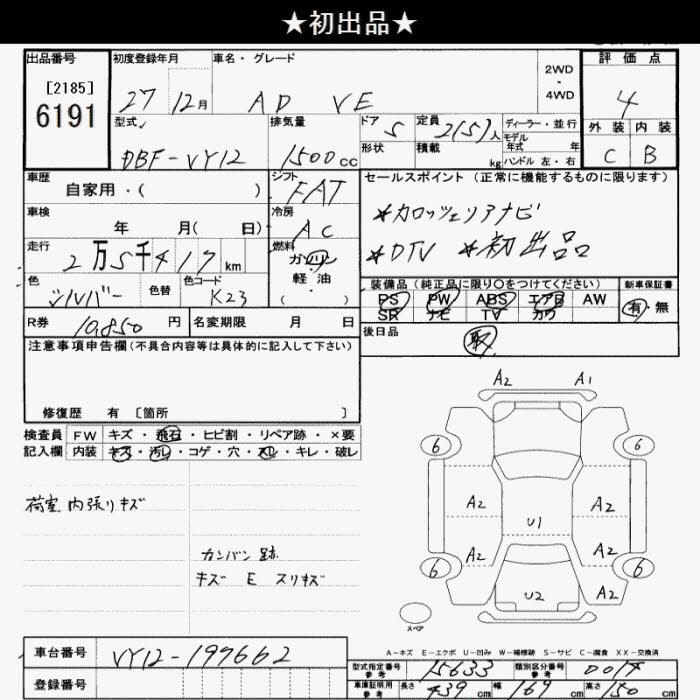 ★初出品★
出品番号
[2185]
6191
初度登録年月
27 12月
車名・グレード
AD VE
2WD
・
4WD
評価点
4
外装 内装
C B
型式
DBF-VY12
排気量
1500cc
ドア
5
形状
定員
2(5)人
積載
kg
ディーラー・並行
モデル
年式 年
ハンドル 左・右
車歴
自家用・( )
シフト
FAT
車検
年 月( 日)
冷房
AC
走行
2万5千417km
燃料
ガソリン
軽油
( ・ )
色
シルバー
色替
色コード
K23
R券
10,850円
名変期限 月 日
セールスポイント(正常に機能するものに限ります)
*カロッツェリアナビ
*DTV *初出品
装備品(純正品に限り〇をつけてください)
新車保証書
PS PW ABS エアB AW
SR ナビ TV カワ
有・無
後日品
取
注意事項申告欄(不具合内容等は具体的に記入して下さい)
修復歴 有 〔箇所 〕
検査員
記入欄
FW キズ・飛石・ヒビ割・リペア跡・×要
内装 キズ・汚レ・コゲ・穴・スレ・キレ・破レ
荷室内張りキズ
カンバン跡
キズ E スリキズ
A2 A1
6 6
A2 A2
U1
A2 A2
6 6
U2 A2
スペア
A-キズ E-エクボ U-凹み W-補修跡 S-サビ C-腐食 XX-交換済
車台番号
VY12-197662
登録番号
型式指定番号
参考
15633
類別区分番号
参考
0014
車庫証明用
参考
長さ 439cm 幅 169cm 高さ 150cm